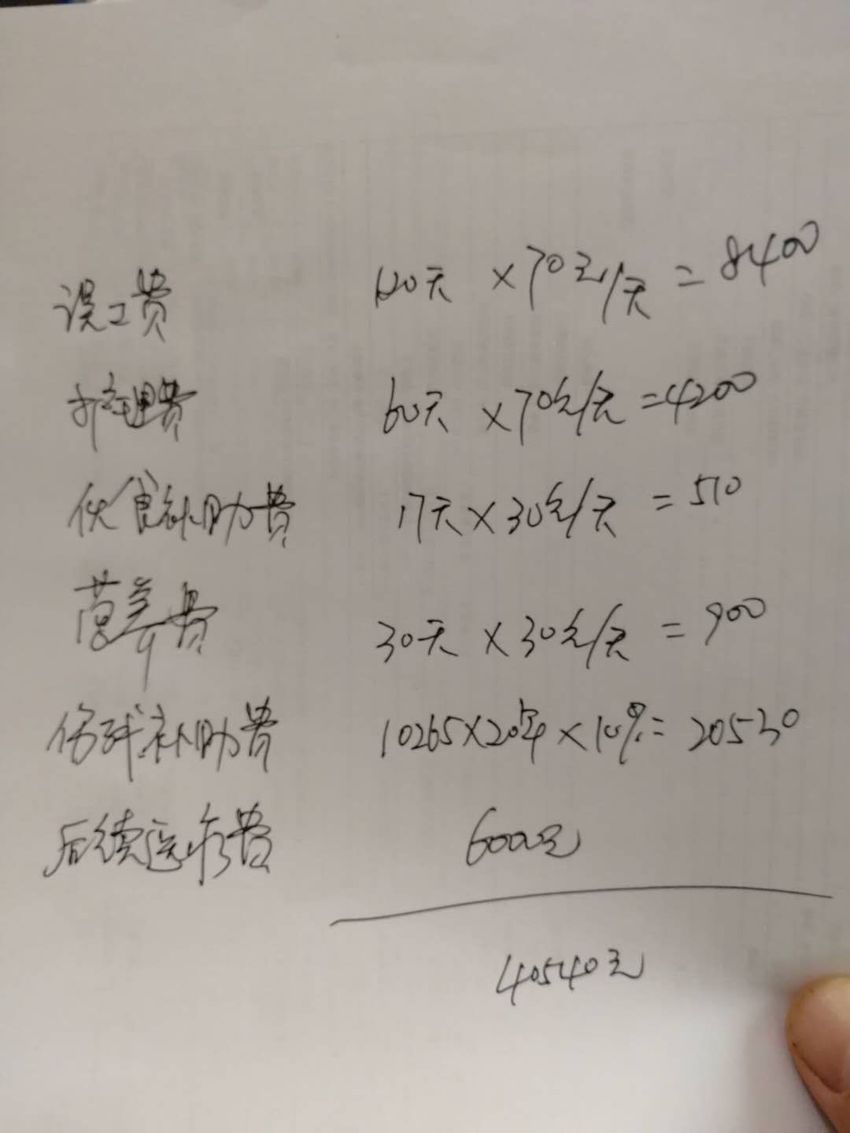 误工费 120天 ×70元/天 = 8400
护理费 60天 ×70元/天 =4200
伙食补助费 17天×30元/天 = 510
营养费 30天 ×30元/天 = 900
伤残补助费 10265×20年×10%= 20530
后续医疗费 6000元
40540元